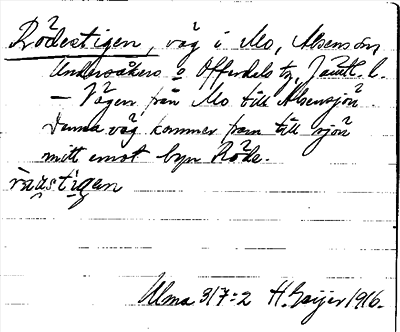 Rödestigen, väg i Mo, Alsens sn,
Undersåkers o Offerdals tg, Jämtl. l.
– Vägen från Mo till Alsensjön
Denna väg kommer fram till sjön
mitt emot byn Röde.
Ulma 317:2 H. Geijer 1916.